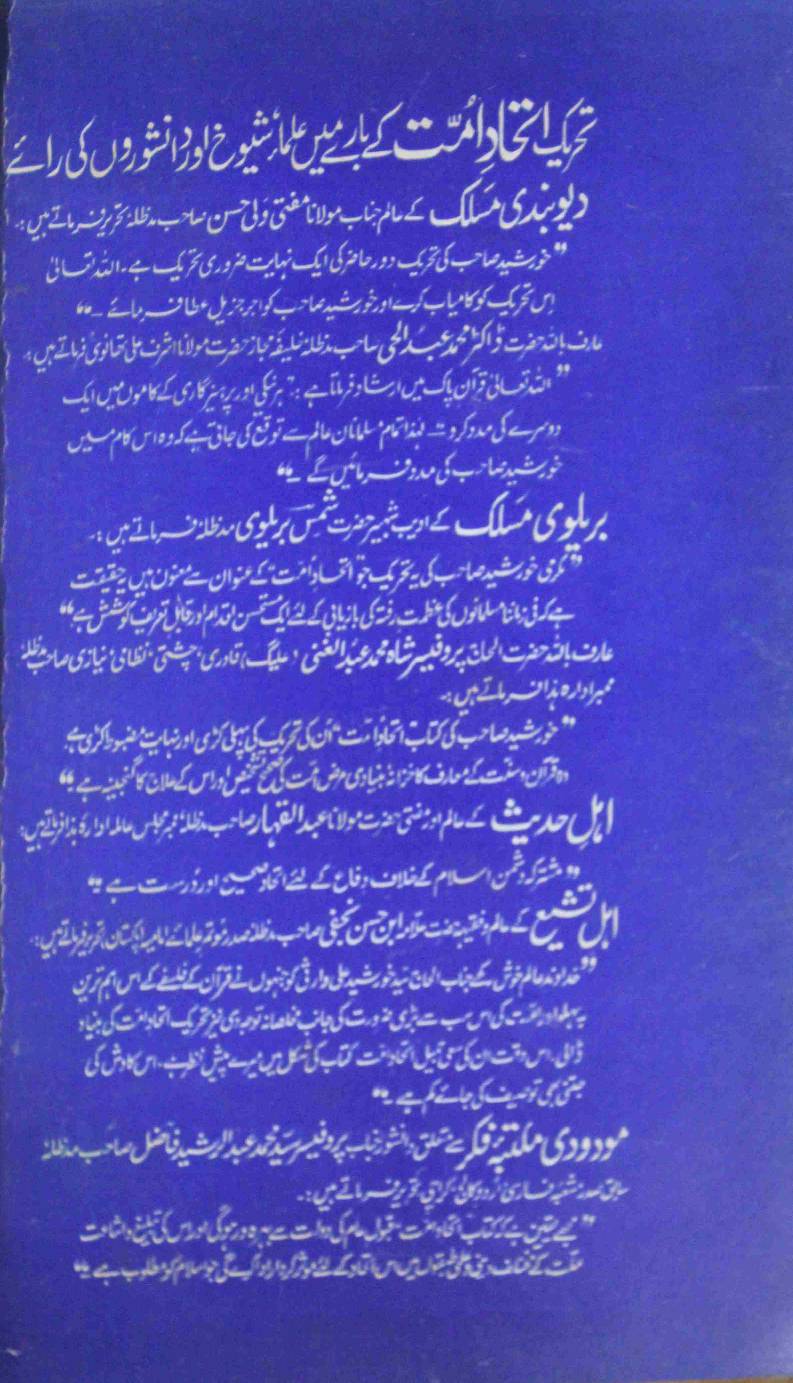 تحریک اتحادِ امّت کے بارے میں علماء شیوخ اور دانشوروں کی رائے
دیوبندی مَسلک کے عالم جناب مولانا مفتی ولی حسن صاحب مدظلہٗ تحریر فرماتے ہیں :۔
”خورشید صاحب کی تحریک دورِ حاضر کی ایک نہایت ضروری تحریک ہے۔ اللہ تعالیٰ
اِس تحریک کو کامیاب کرے اور خورشید صاحب کو اجرِ جزیل عطا فرمائے ۔“
عارف باللہ حضرت ڈاکٹر محمد عبدُ الحی صاحب مدظلہٗ خلیفہٗ مجاز حضرت مولانا اشرف علی تھانویؒ فرماتے ہیں :
”اللہ تعالیٰ قرآن پاک میں ارشاد فرماتا ہے :” نیکی اور پرہیزگاری کے کاموں میں ایک
دوسرے کی مدد کرو“ لہٰذا تمام مسلمانان عالم سے توقع کی جاتی ہے کہ وہ اس کام میں
خورشید صاحب کی مدد فرمائیں گے ۔“
بریلوی مَسلک کے ادیب شہیر حضرت شمسؔ بریلوی مدظلہٗ فرماتے ہیں :۔
”مکرمی خورشید صاحب کی یہ تحریک جو ”اتحادِ اُمت“ کے عنوان سے معنون ہیں حقیقت
ہے کہ فی زماننا مسلمانوں کی عظمت رفتہ کی بازیابی کے لئے ایک مستحسن اقدام اور قابل تعریف کوشش ہے“
عارف باللہ حضرت الحاج پروفیسر شاہ محمد عبدُ الغنی (علیگ) قادری، چشتی، نظامی، نیازی صاحب مدظلہٗ
ممبر ادارہ ہذا فرماتے ہیں :۔
”خورشید صاحب کی کتاب ”اتحادِ اُمت“ اُن کی تحریک کی پہلی کڑی اور نہایت مضبوط کڑی ہے۔
وہ قرآن و سنّت کے معارف کا خزانہ بنیادی مرض امّت کی صحیح تشخیص اور اس کے علاج کا گنجینہ ہے“
اہلِ حدیث کے عالم اور مفتی حضرت مولانا عبد القہار صاحب مدظلہٗ ممبر مجلسِ عاملہ ادارہ ہذا فرماتے ہیں :
”مشترکہ دشمن اسلام کے خلاف دفاع کے لئے اتحاد صحیح اور دُرست ہے“
اہلِ تشیع کے عالم و فقیہہ حضرت علّامہ ابن حسن نجفی صاحب مدظلہٗ صدر مؤتمر علمائے امامیہ پاکستان تحریر فرماتے ہیں :۔
”خداوند عالم خوش رکھے جناب الحاج سید خورشید علی وارثی کو جنہوں نے قرآن کے فلسفے کے اس اہم ترین
پہلو اور امّت کی اس سب سے بڑی ضرورت کی جانب مخلصانہ توجہ دی نیز تحریک اتحادِ امت کی بنیاد
ڈالی۔ اس وقت ان کی سعیِ جمیل اتحادِ امّت کتاب کی شکل میں میرے پیش نظر ہے۔ اس کاوش کی
جتنی بھی توصیف کی جائے کم ہے ۔“
مودودی مکتبۂ فکر سے متعلق دانشور جناب پروفیسر سیّد محمد عبد الرشید فاضل صاحب مدظلہٗ
سابق صدر شعبہ فارسی اُردو کالج کراچی تحریر فرماتے ہیں :۔
”مجھے یقین ہے کہ کتاب اتحادِ امّت قبول عام کی دولت سے بہرہ ور ہوگی اور اس کی تبلیغ و اشاعت
ملّت کے مختلف دینی و علمی طبقوں میں اس اتحاد کے لئے مؤثر کردار ادا کرے گی جو اسلام کو مطلوب ہے“